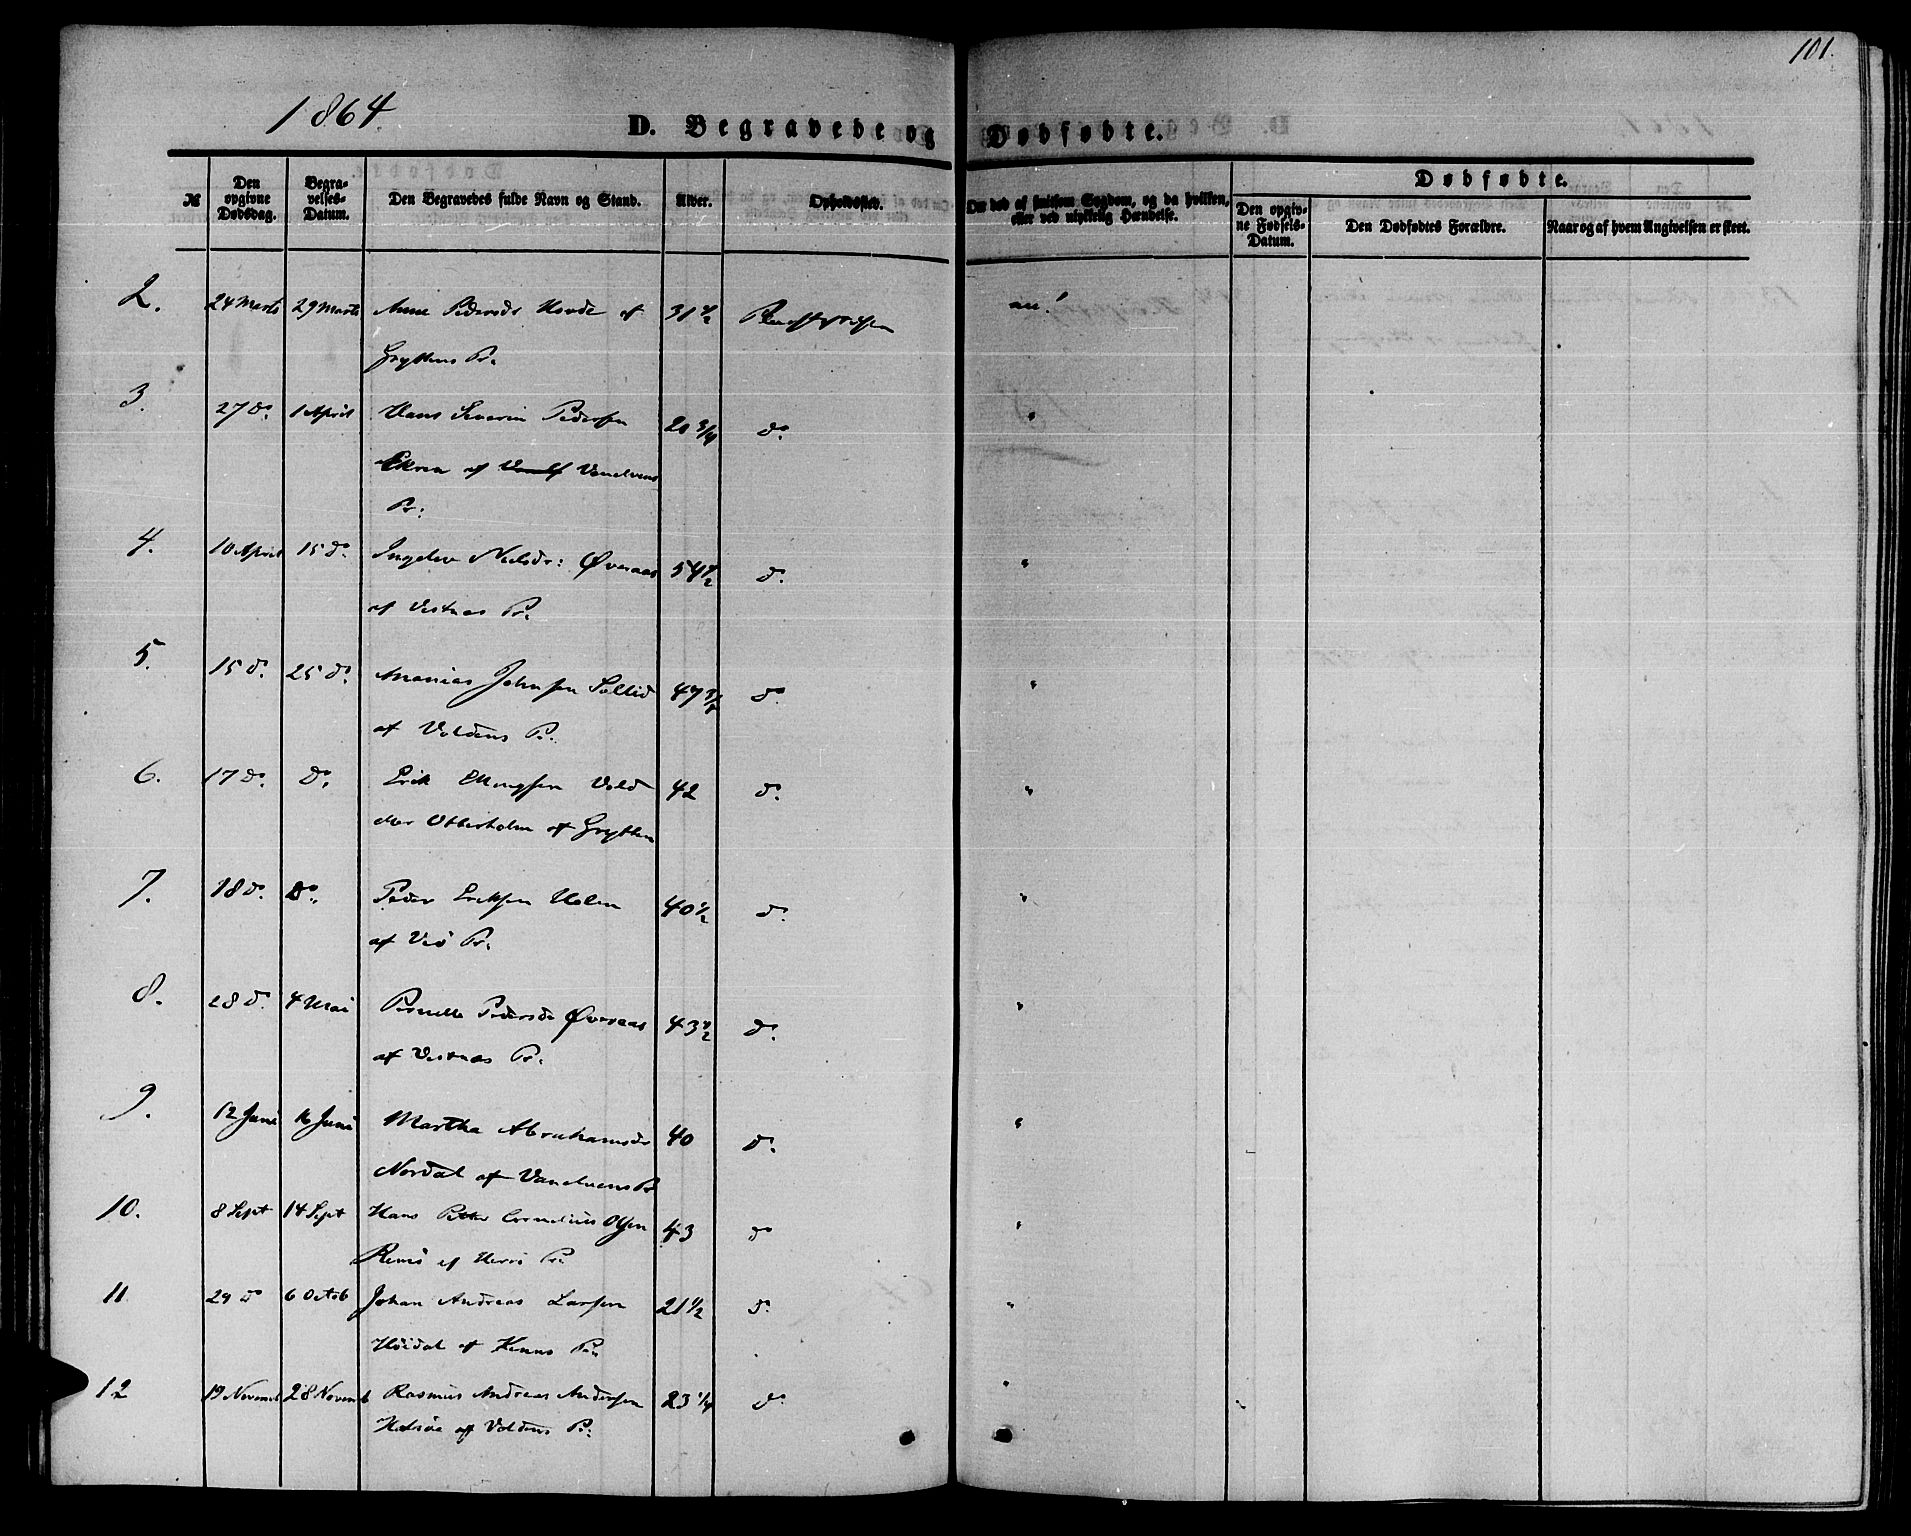 101.
1864
D. Begravede og Dødfødte.
№
Den opgivne Dødsdag.
Begravelses-Datum.
Den Begravedes fulde Navn og Stand.
Alder.
Opholdssted.
Om død af smitsom Sygdom, og da hvilken, eller ved ulykkelig Hændelse.
Dødfødte.
Den opgivne Fødsels-Datum.
Den Dødfødtes Forældre.
Naar og af hvem Angivelsen er skeet.
2. 24 Marts 29 Marts Anne Pedersdr af 31 1/2
Gryttens Pr.
3. 27 do 1 April Hans Severin Pedersen 20 3/4 do "
Ekren af Vanelvens
Pr:
4. 10 April 15 do Ingelev Nielsdr: Øveraas 54 1/2 do "
af Vestnes Pr.
5. 15 do 25 do Ananias Johnsen 47 do "
af Voldens Pr.
6. 17 do do Erik Vold 42 do "
eller Otterholm af Grytten
7. 18 do do Peder Eriksen Holen 40 1/2 do "
af Veø Pr.
8. 28 do 4 Mai Pernelle Pedersdr Øveraas 43 1/2 do "
af Vestnes Pr.
9. 12 Juni 16 Juni Martha Abrahamsdr 40 do "
Nordal af Vanelvens Pr
10. 8 Sept 14 Sept Hans Petter Cornelius Olsen 43 do "
Remø af Herrø Pr.
11 29 do 6 Octob Johan Andreas Larsen 21 1/2 do "
Høidal af Kinns Pr.
12 19 Novemb 28 Novemb Rasmus Andreas Andersen 23 1/4 do "
af Voldens Pr.